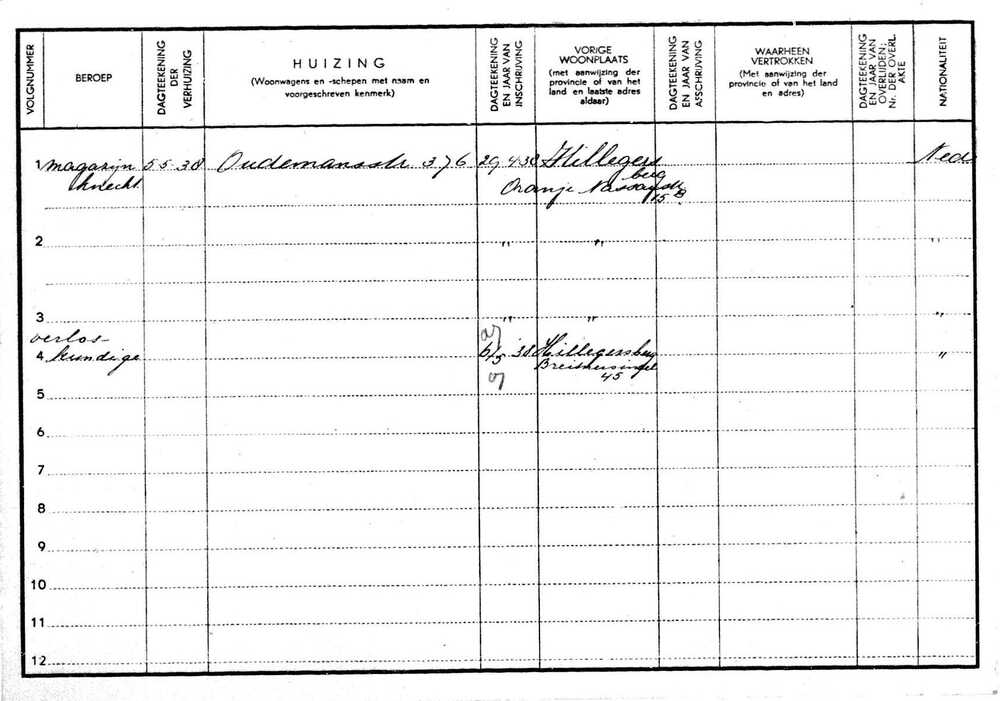 VOLGNUMMER
BEROEP
DAGTEEKENING
DER
VERHUIZING
HUIZING
(Woonwagens en -schepen met naam en
voorgeschreven kenmerk)
DAGTEEKENING
EN JAAR VAN
INSCHRIJVING
VORIGE
WOONPLAATS
(met aanwijzing der
provincie of van het
land en laatste adres
aldaar)
DAGTEEKENING
EN JAAR VAN
AFSCHRIJVING
WAARHEEN
VERTROKKEN
(Met aanwijzing der
provincie of van het land
en adres)
DAGTEEKENING
EN JAAR VAN
OVERLIJDEN;
Nr. DER OVERL.
AKTE
NATIONALITEIT
1 magazijn 5-5-38 Oudemansstr 376 29 4-38 Hillegers Ned
knecht berg
Oranje Nassaustr
15 B.
2 " " "
3 " " "
verlos-
4 kundige 6/5 38 Hillegersberg "
Breitnersingel
45
5
6
7
8
9
10
11
12